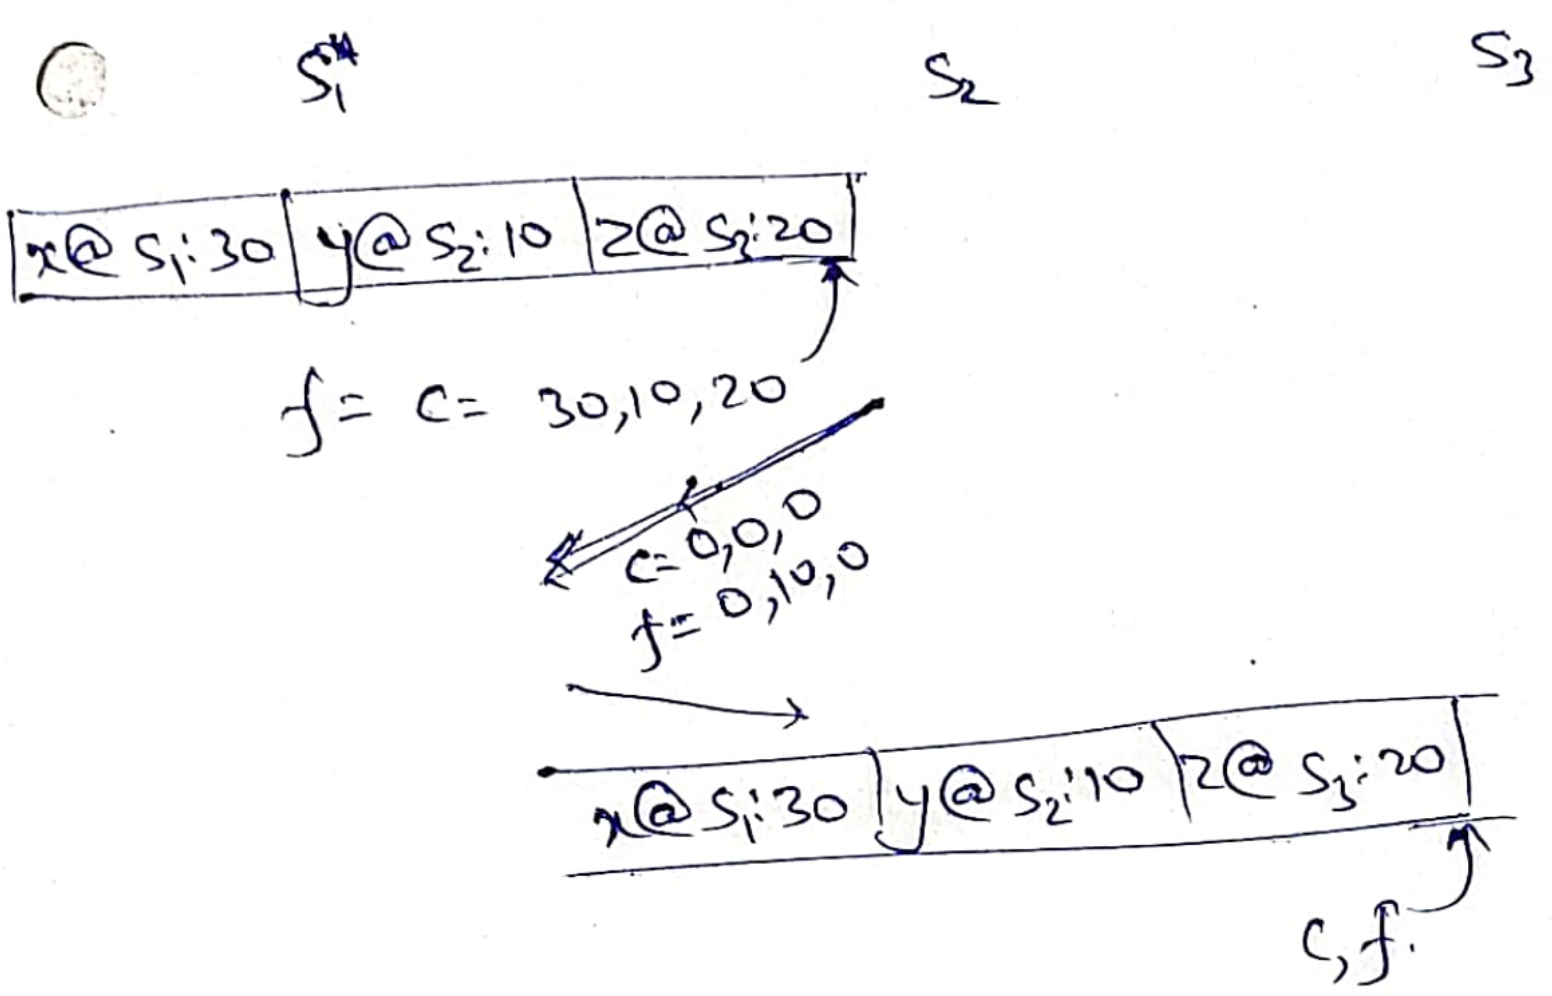 S₁* S₂ S₃
x@ S₁:30 y@ S₂:10 z@ S₃:20
f = c = 30,10,20
c=0,0,0
f=0,10,0
x@ S₁:30 y@ S₂:10 z@ S₃:20
c, f.